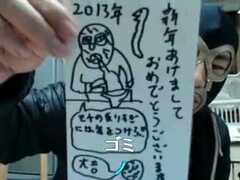 2013年
新年あけまして
おめでとうございます
モチの食いすぎ
には気をつけろ
大吉